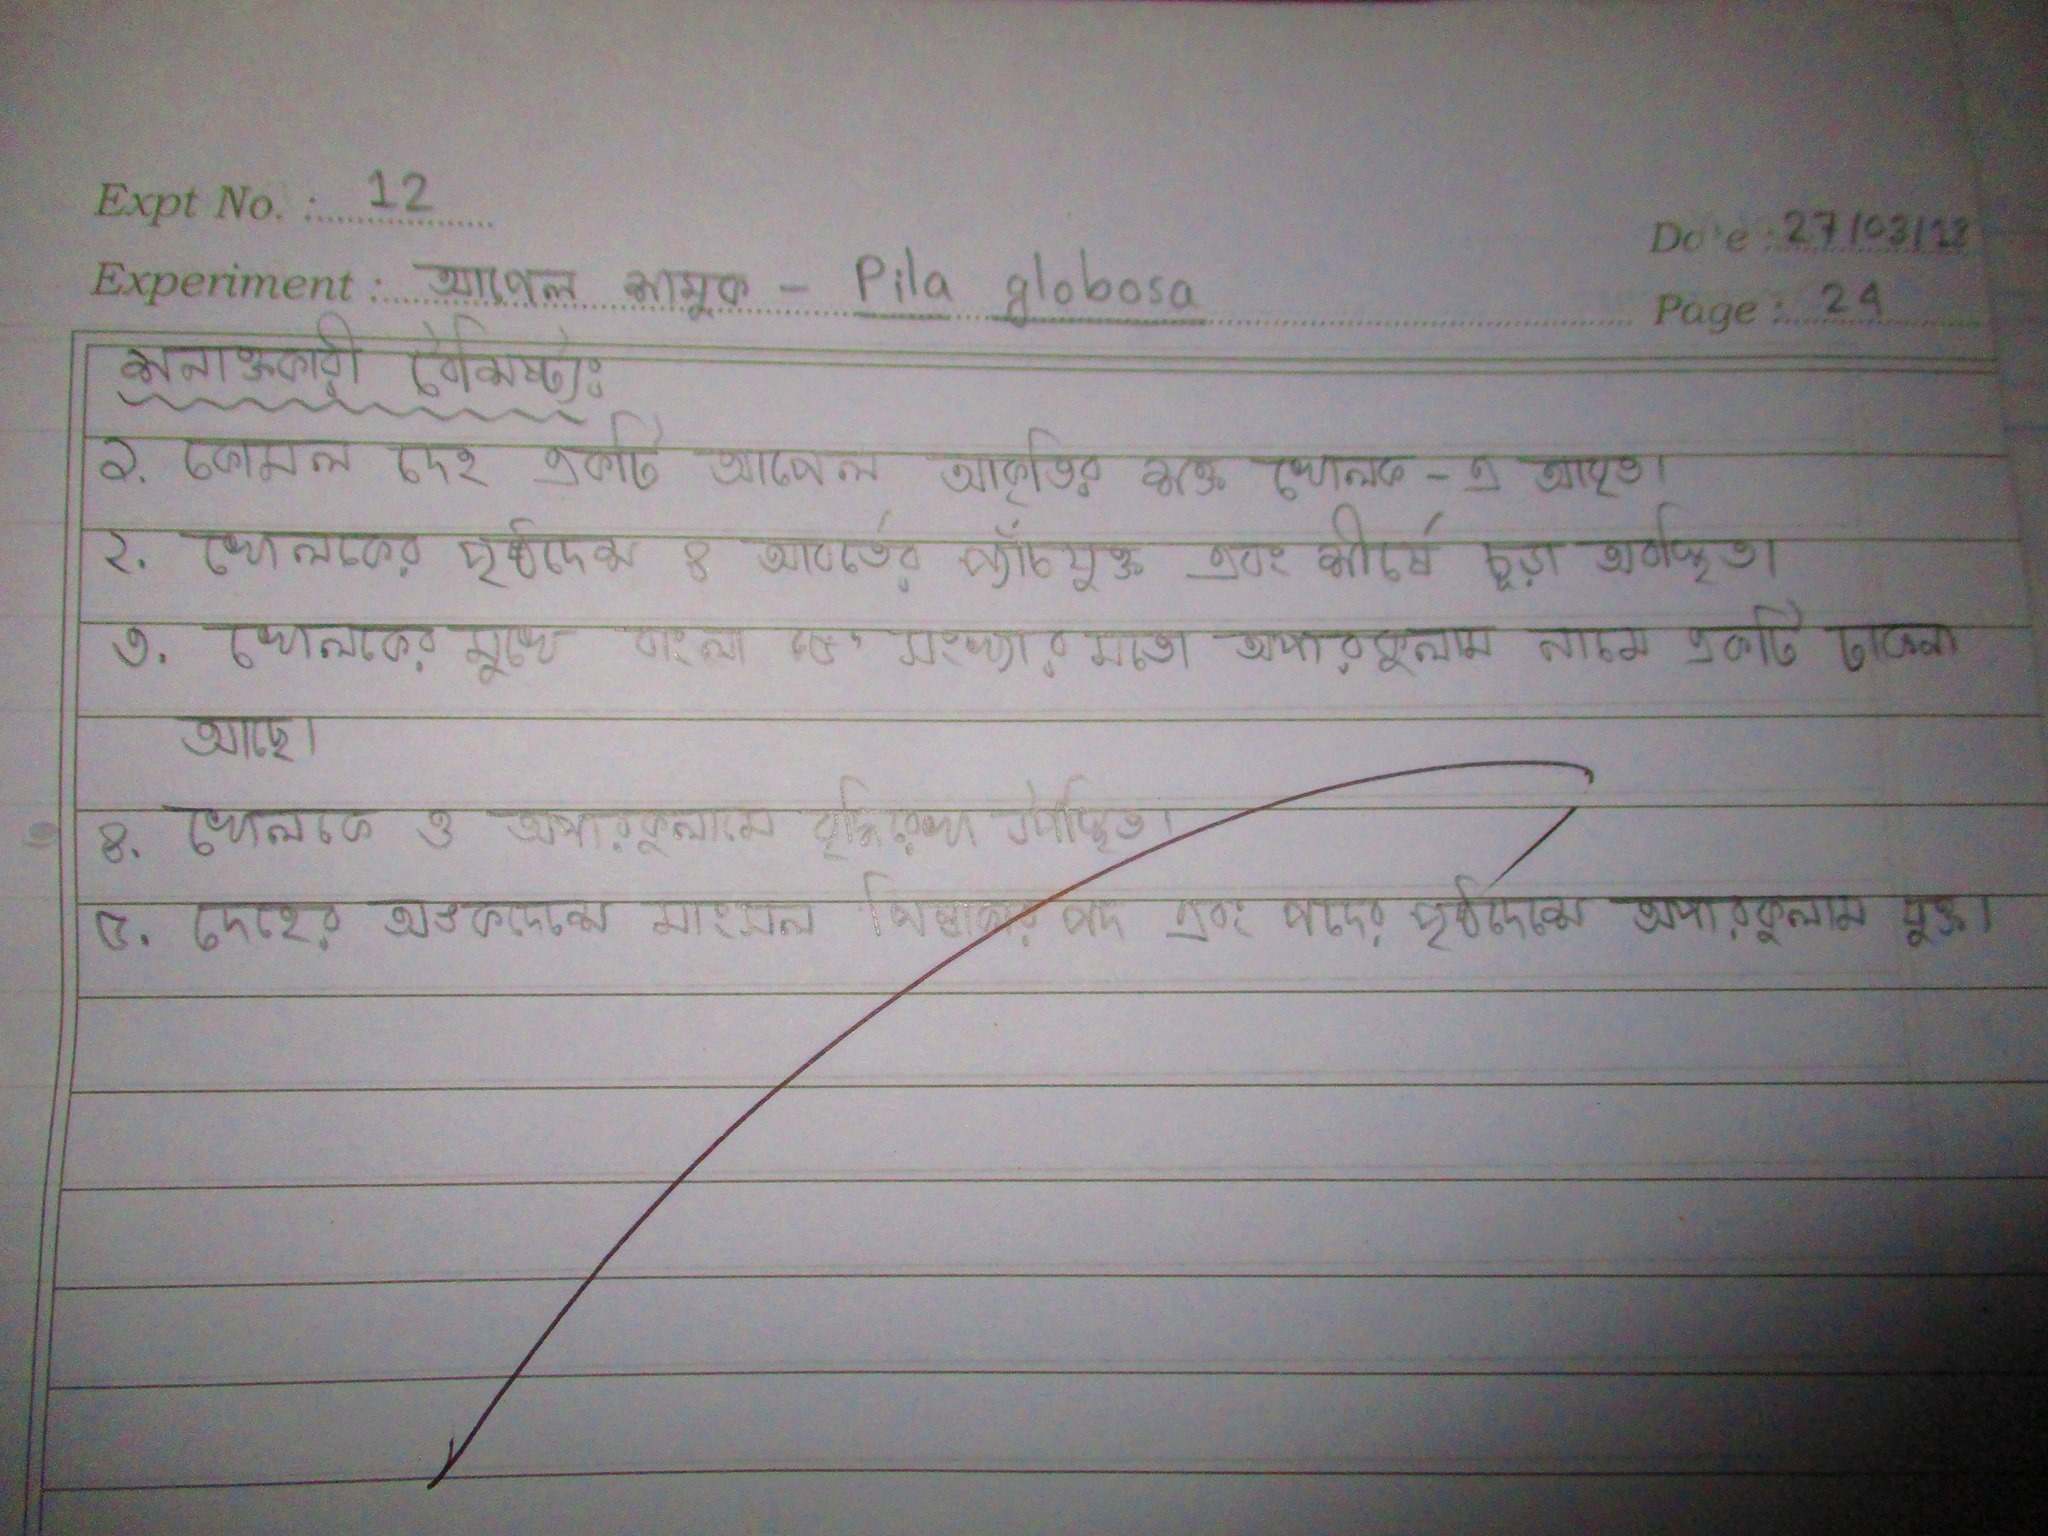 Expt No. : 12
Date : 27/03/23
Experiment : আপেল শামুক - Pila globosa
Page : 24
শনাক্তকারী বৈশিষ্ট্যঃ
১. কোমল দেহ একটি আপেল আকৃতির শক্ত খোলক - এ আবৃত।
২. খোলকের পৃষ্ঠদেশ ৪ আবর্তের প্যাঁচযুক্ত এবং শীর্ষে চূড়া অবস্থিত।
৩. খোলকের মুখে বাংলা '৫' সংখ্যার মতো অপারকুলাম নামে একটি ঢাকনা
আছে।
৪. খোলকে ও অপারকুলামে বৃদ্ধিরেখা উপস্থিত।
৫. দেহের অঙ্কদেশে মাংসল পিণ্ডাকার পদ এবং পদের পৃষ্ঠদেশে অপারকুলাম যুক্ত।